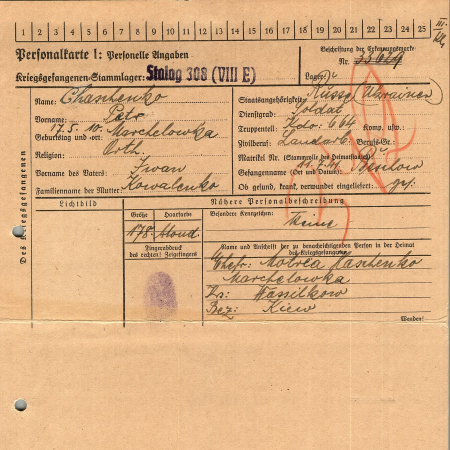 1 2 3 4 5 6 7 8 9 10 11 12 13 14 15 16 17 18 19 20 21 22 23 24 25
Personalkarte I: Personelle Angaben
Kriegsgefangenen-Stammlager: Stalag 308 (VIII E)
Beschriftung der Erkennungsmarke
Nr. 33629
Lager:
Des Kriegsgefangenen
Name: Chashenko
Vorname: Petr
Geburtstag und -ort: 17.5.10. Marchelowka
Religion: Orth.
Vorname des Vaters: Iwan
Familienname der Mutter: Kowalenko
Staatsangehörigkeit: Russe (Ukrainer)
Dienstgrad: Soldat
Truppenteil: 664 Komp. usw.:
Zivilberuf: Landarb. Berufs-Gr.:
Matrikel Nr. (Stammrolle des Heimatstaates):
Gefangennahme (Ort und Datum):
Ob gesund, krank, verwundet eingeliefert: ges.
Lichtbild
Größe Haarfarbe
178 blond
Fingerabdruck
des rechten! Zeigefingers
Nähere Personalbeschreibung
Besondere Kennzeichen:
Keine
Name und Anschrift der zu benachrichtigenden Person in der Heimat
des Kriegsgefangenen
Ehefr:
Marchelowka
Wassilkow
Bez: Kiew
Wenden!